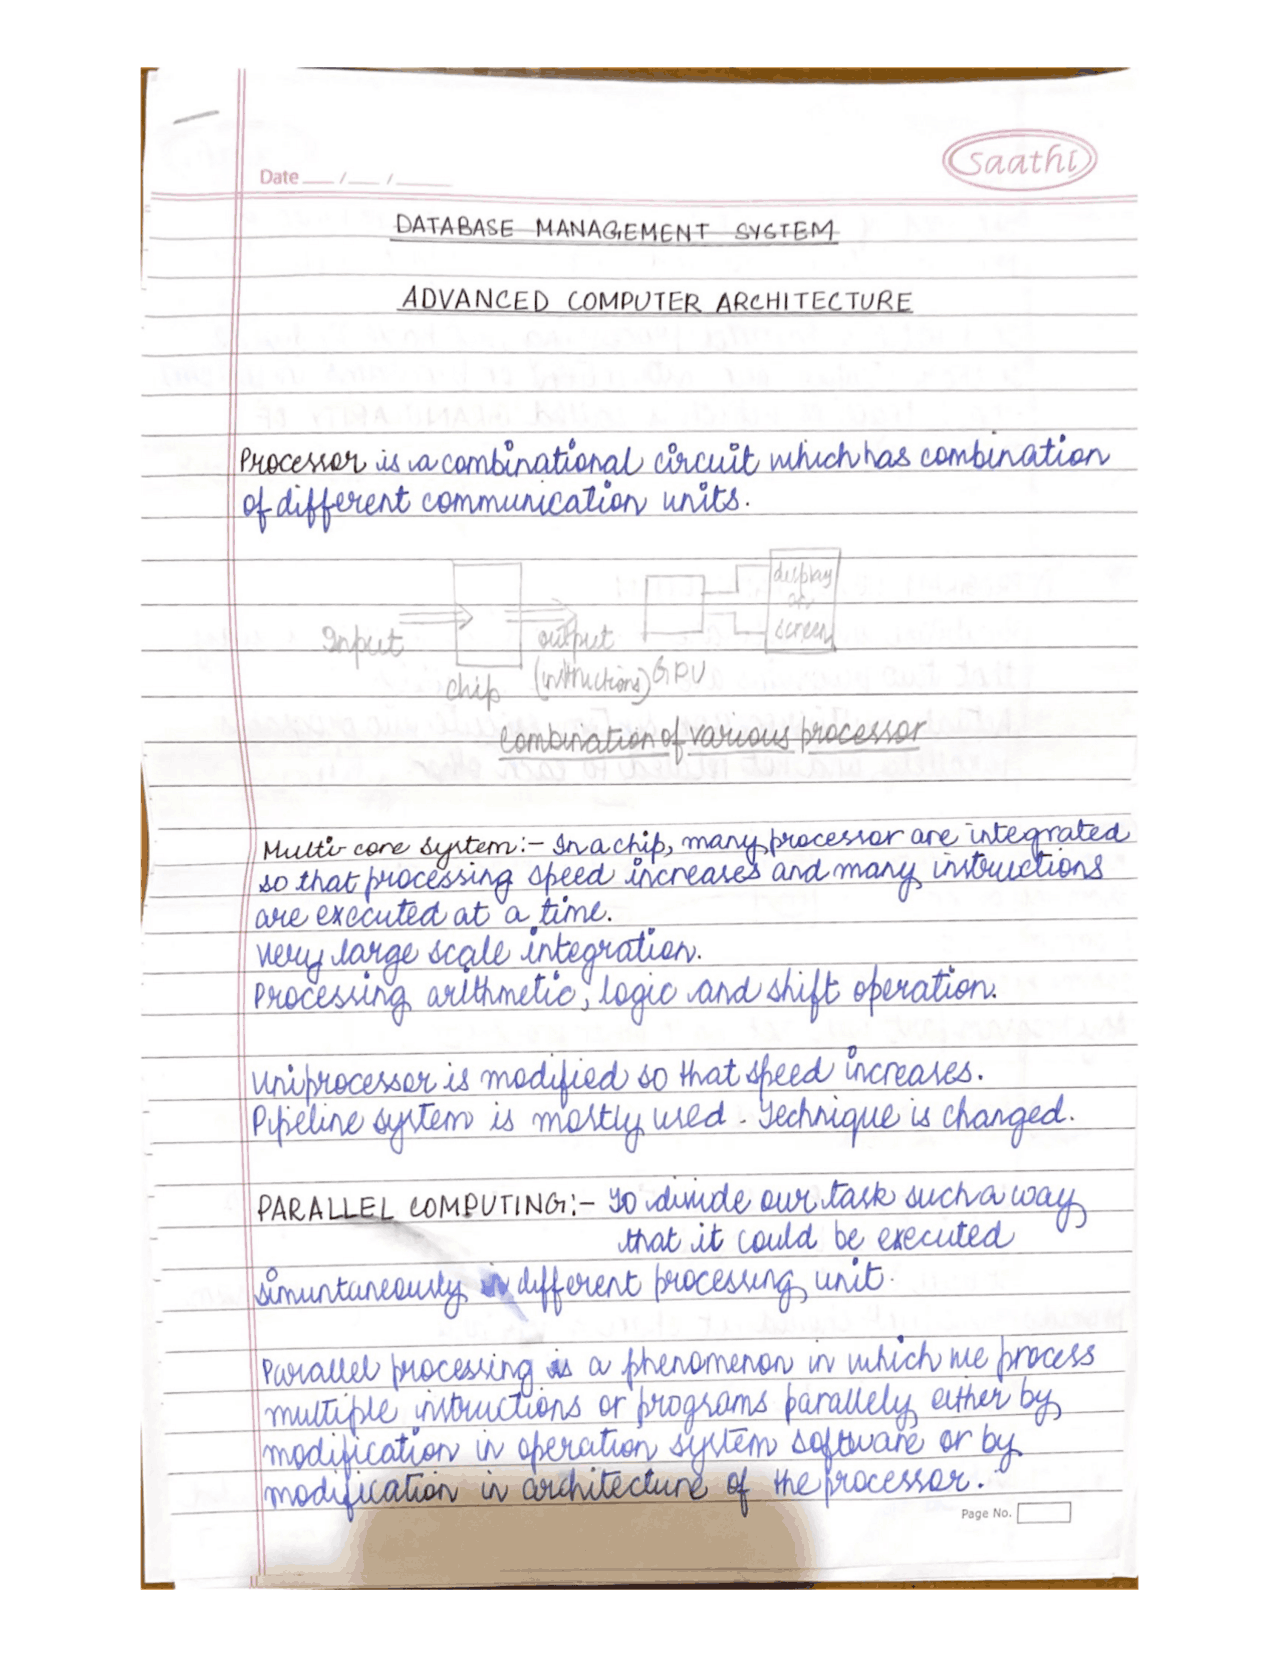 Date ___ / ___ / _____
Saathi
DATABASE MANAGEMENT SYSTEM
ADVANCED COMPUTER ARCHITECTURE
Processor is a combinational circuit which has combination
of different communication units.
display
or
screen
Input
output
chip
(instructions)
GPU
Combination of various processor
Multi core system:- In a chip, many processor are integrated
so that processing speed increases and many instructions
are executed at a time.
very large scale integration.
Processing arithmetic, logic and shift operation.
Uniprocessor is modified so that speed increases.
Pipeline system is mostly used. Technique is changed.
PARALLEL COMPUTING:- To divide our task such a way
that it could be executed
simuntaneously in different processing unit.
Parallel processing is a phenomenon in which we process
multiple instructions or programs parallely either by
modification in operation system software or by
modification in architecture of the processor.
Page No.